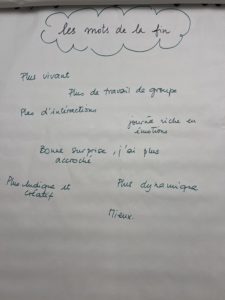 les mots de la fin
Plus vivant
Plus de travail de groupe
Plus d'intéractions
journée riche en
émotions
Bonne surprise, j'ai plus
accroché
Plus ludique et
créatif
Plus dynamique
Mieux